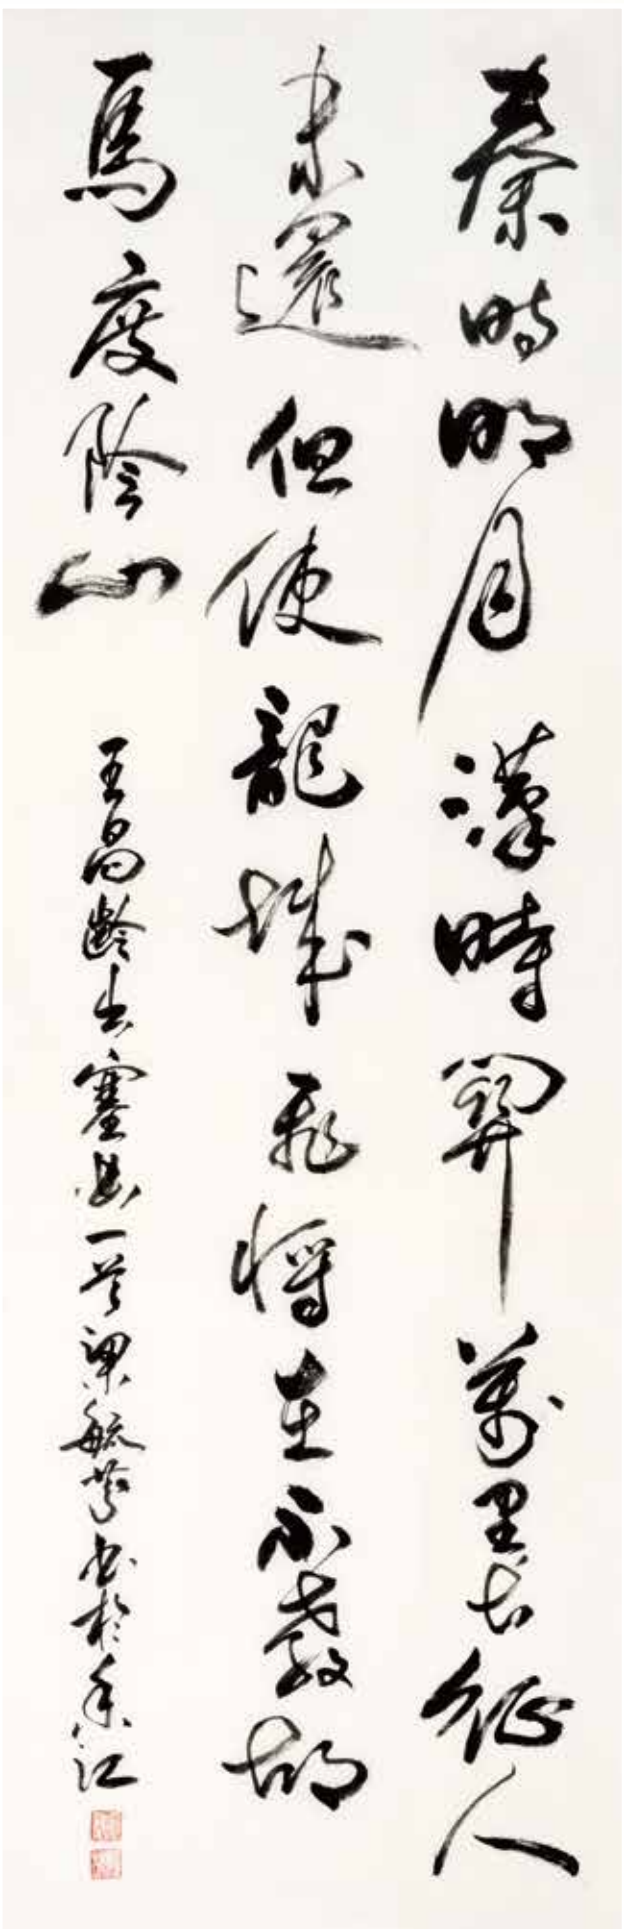 秦時明月漢時關萬里長征人
未還但使龍城飛將在不教胡
馬度陰山
王昌齡出塞一首梁毓書於香江